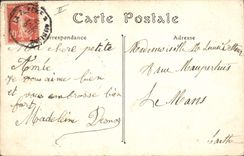 Carte Postale
Correspondance
Adresse
Ma chere petite
Aimée
je vous aime bien
et vous embrasse bien
fort
Madeleine
Mademoiselle
8 rue Mauperluis
Le Mans
Sarthe